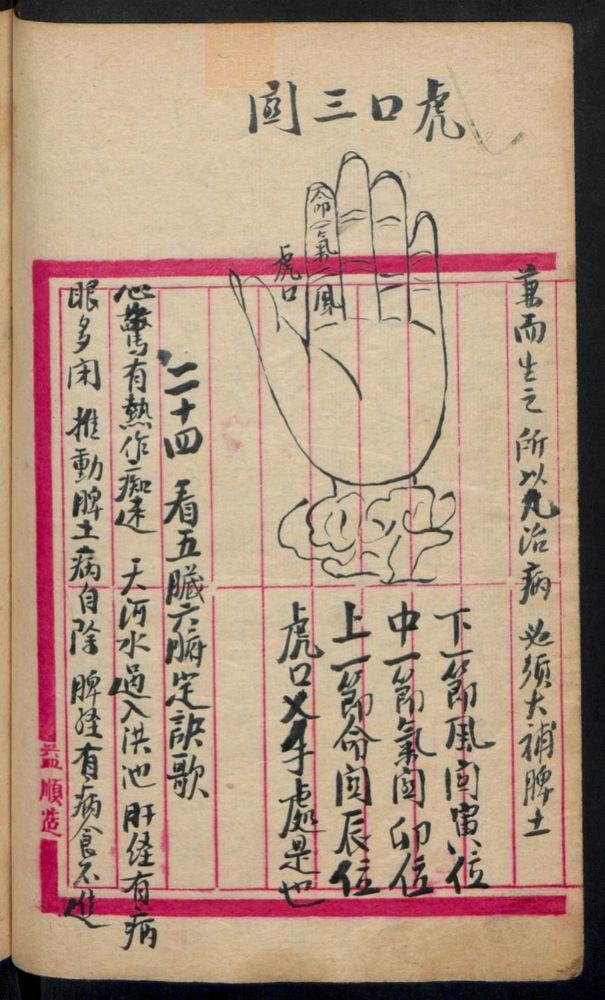 虎口三関
兼而生之 所以凡治病 必須大補脾土
命
氣
風
虎口
下一節風関寅位
中一節氣関卯位
上一節命関辰位
虎口叉手處是也
二十四 看五臟六腑定訣歌
心驚有熱作痴迷 天河水過入洪池 肝経有病
眼多闭 推動脾土病自除 脾経有病食不進
益順造